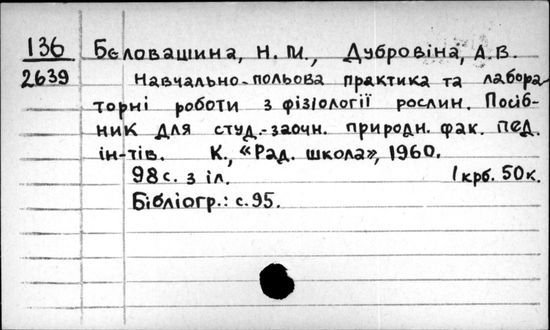 136 Бєловашина, Н. М., Дубровіна, А. В.
2639 Навчально-польова практика та лабора-
торні роботи з фізіології рослин. Посіб-
ник для студ.-заочн. природн. фак. пед.
ін-тів. К., «Рад. школа», 1960.
98 с. з іл. 1 крб. 50 к.
Бібліогр.: с. 95.